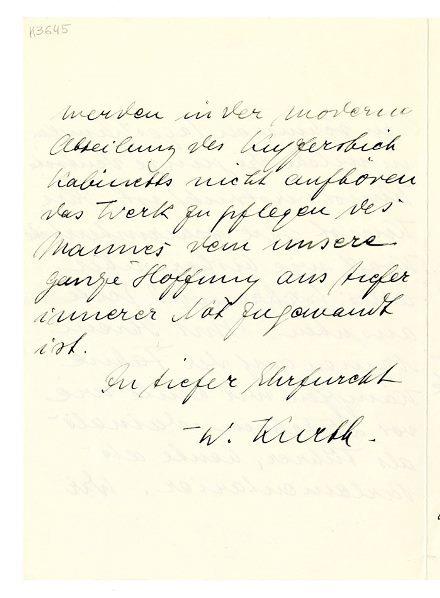 K3645
werden in der modernen
Abteilung des Kupferstich
Kabinetts nicht aufhören
das Werk zu pflegen des
Mannes dem unsere
ganze Hoffnung aus tiefer
innerer Not zugewandt
ist.
In tiefer Ehrfurcht
- W. Kurth.